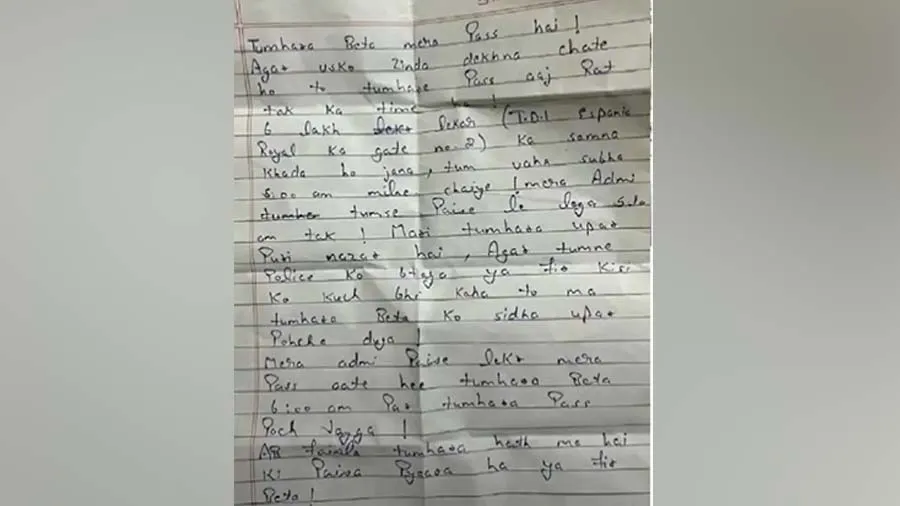 Tumhara Beta mera Pass hai !
Agar usko Zinda dekhna chate
ho to tumhare Pass aaj Rat
tak ka time ha !
6 lakh lekar (T.D.I Espania
Royal ka gate no.2) ka samna
Khada ho jana, tum vaha subha
5:00 am milne chaiye ! mera Admi
tumse Paise le lega
am tak ! Mari tumhara upar
Puri nazar hai, Agar tumne
Police ko btaya ya fir kisi
ko kuch bhi kaha to ma
tumhara Beta ko sidha upar
Pohcha duga !
Mera admi Paise lekr mera
Pass aate hee tumhara Beta
6:00 am Par tumhara Pass
Poch Jayga !
AB faisla tumhara hath me hai
Ki Paisa Pyaara ha ya fir
Beta !